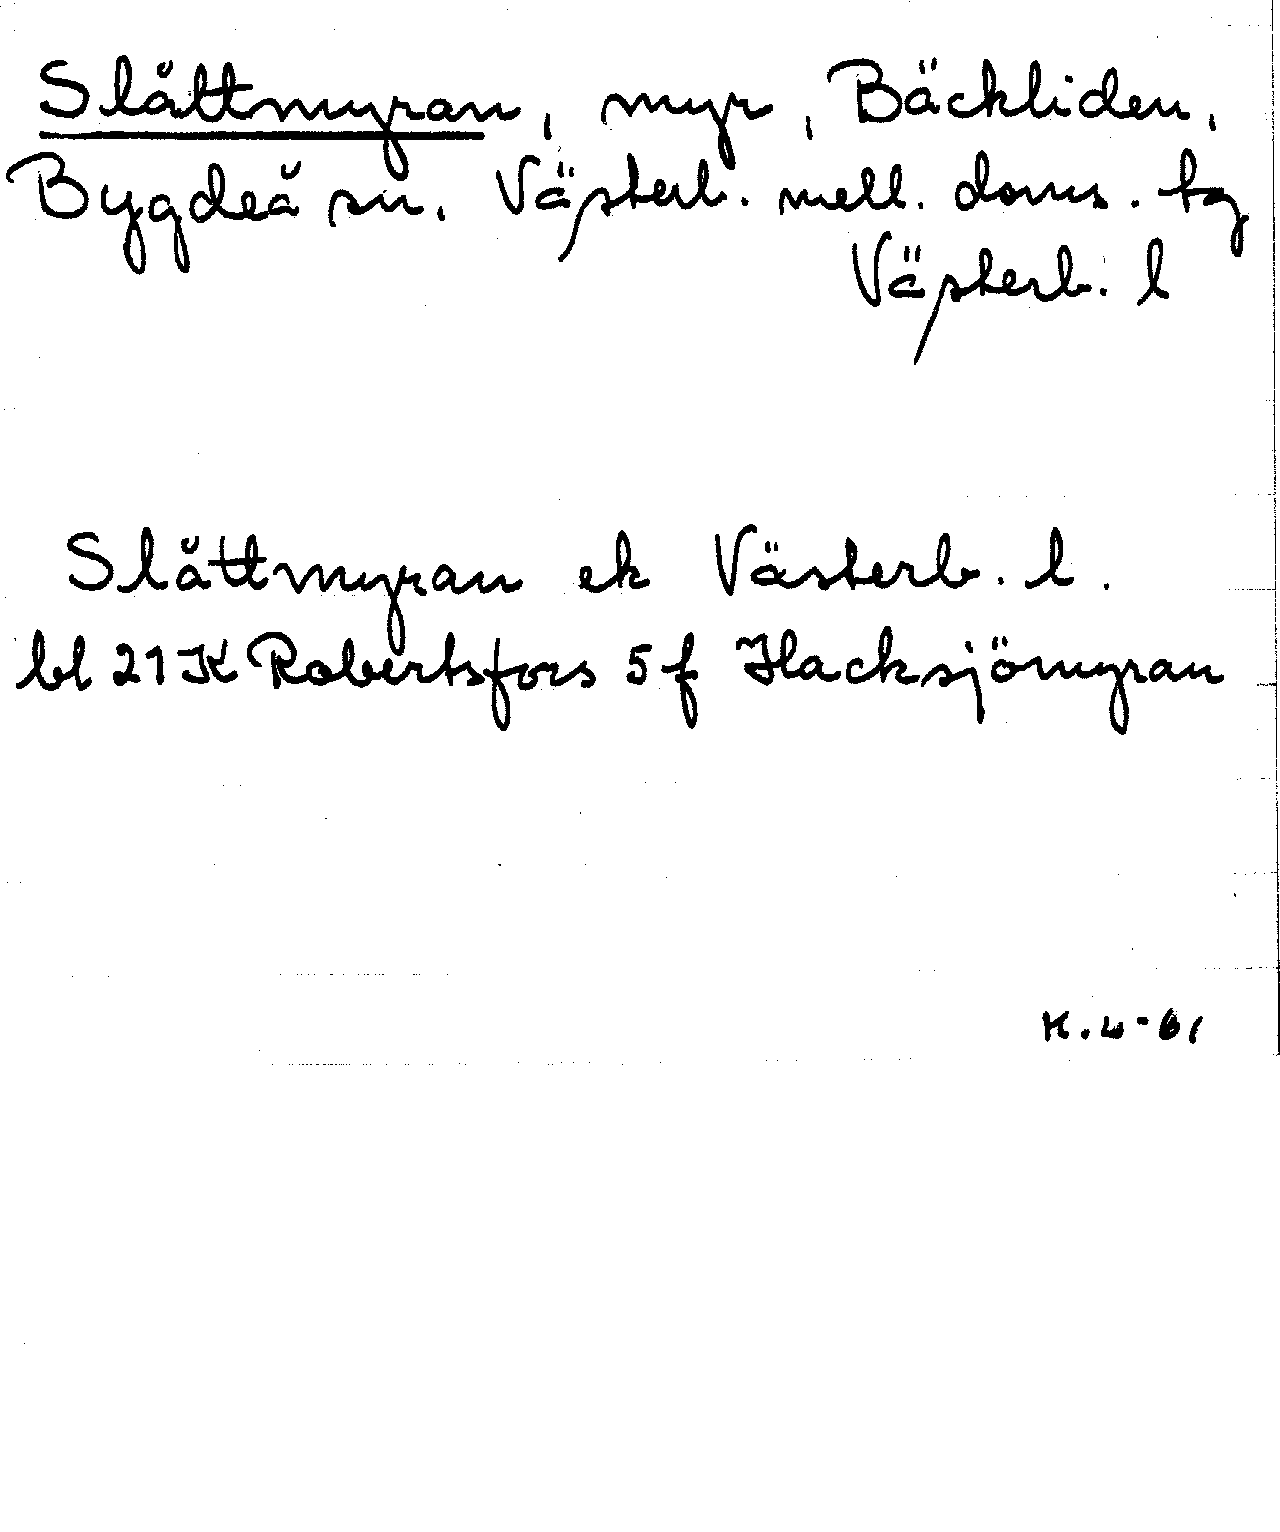 Slåttmyran, myr, Bäckliden,
Bygdeå sn. Västerb. mell. doms. tg
Västerb. l
Slåttmyran ek Västerb. l.
bl 21K Robertsfors 5f Hacksjömyran
K.4-61